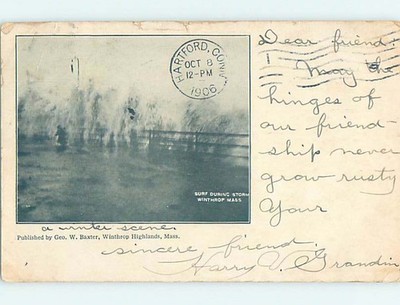 HARTFORD, CONN.
OCT 8
12-PM
1906
Dear friend:
May the
hinges of
our friend-
ship never
grow rusty
Your
sincere friend.
Harry V. Grandin
SURF DURING STORM
WINTHROP MASS.
a winter scene.
Published by Geo. W. Baxter, Winthrop Highlands, Mass.